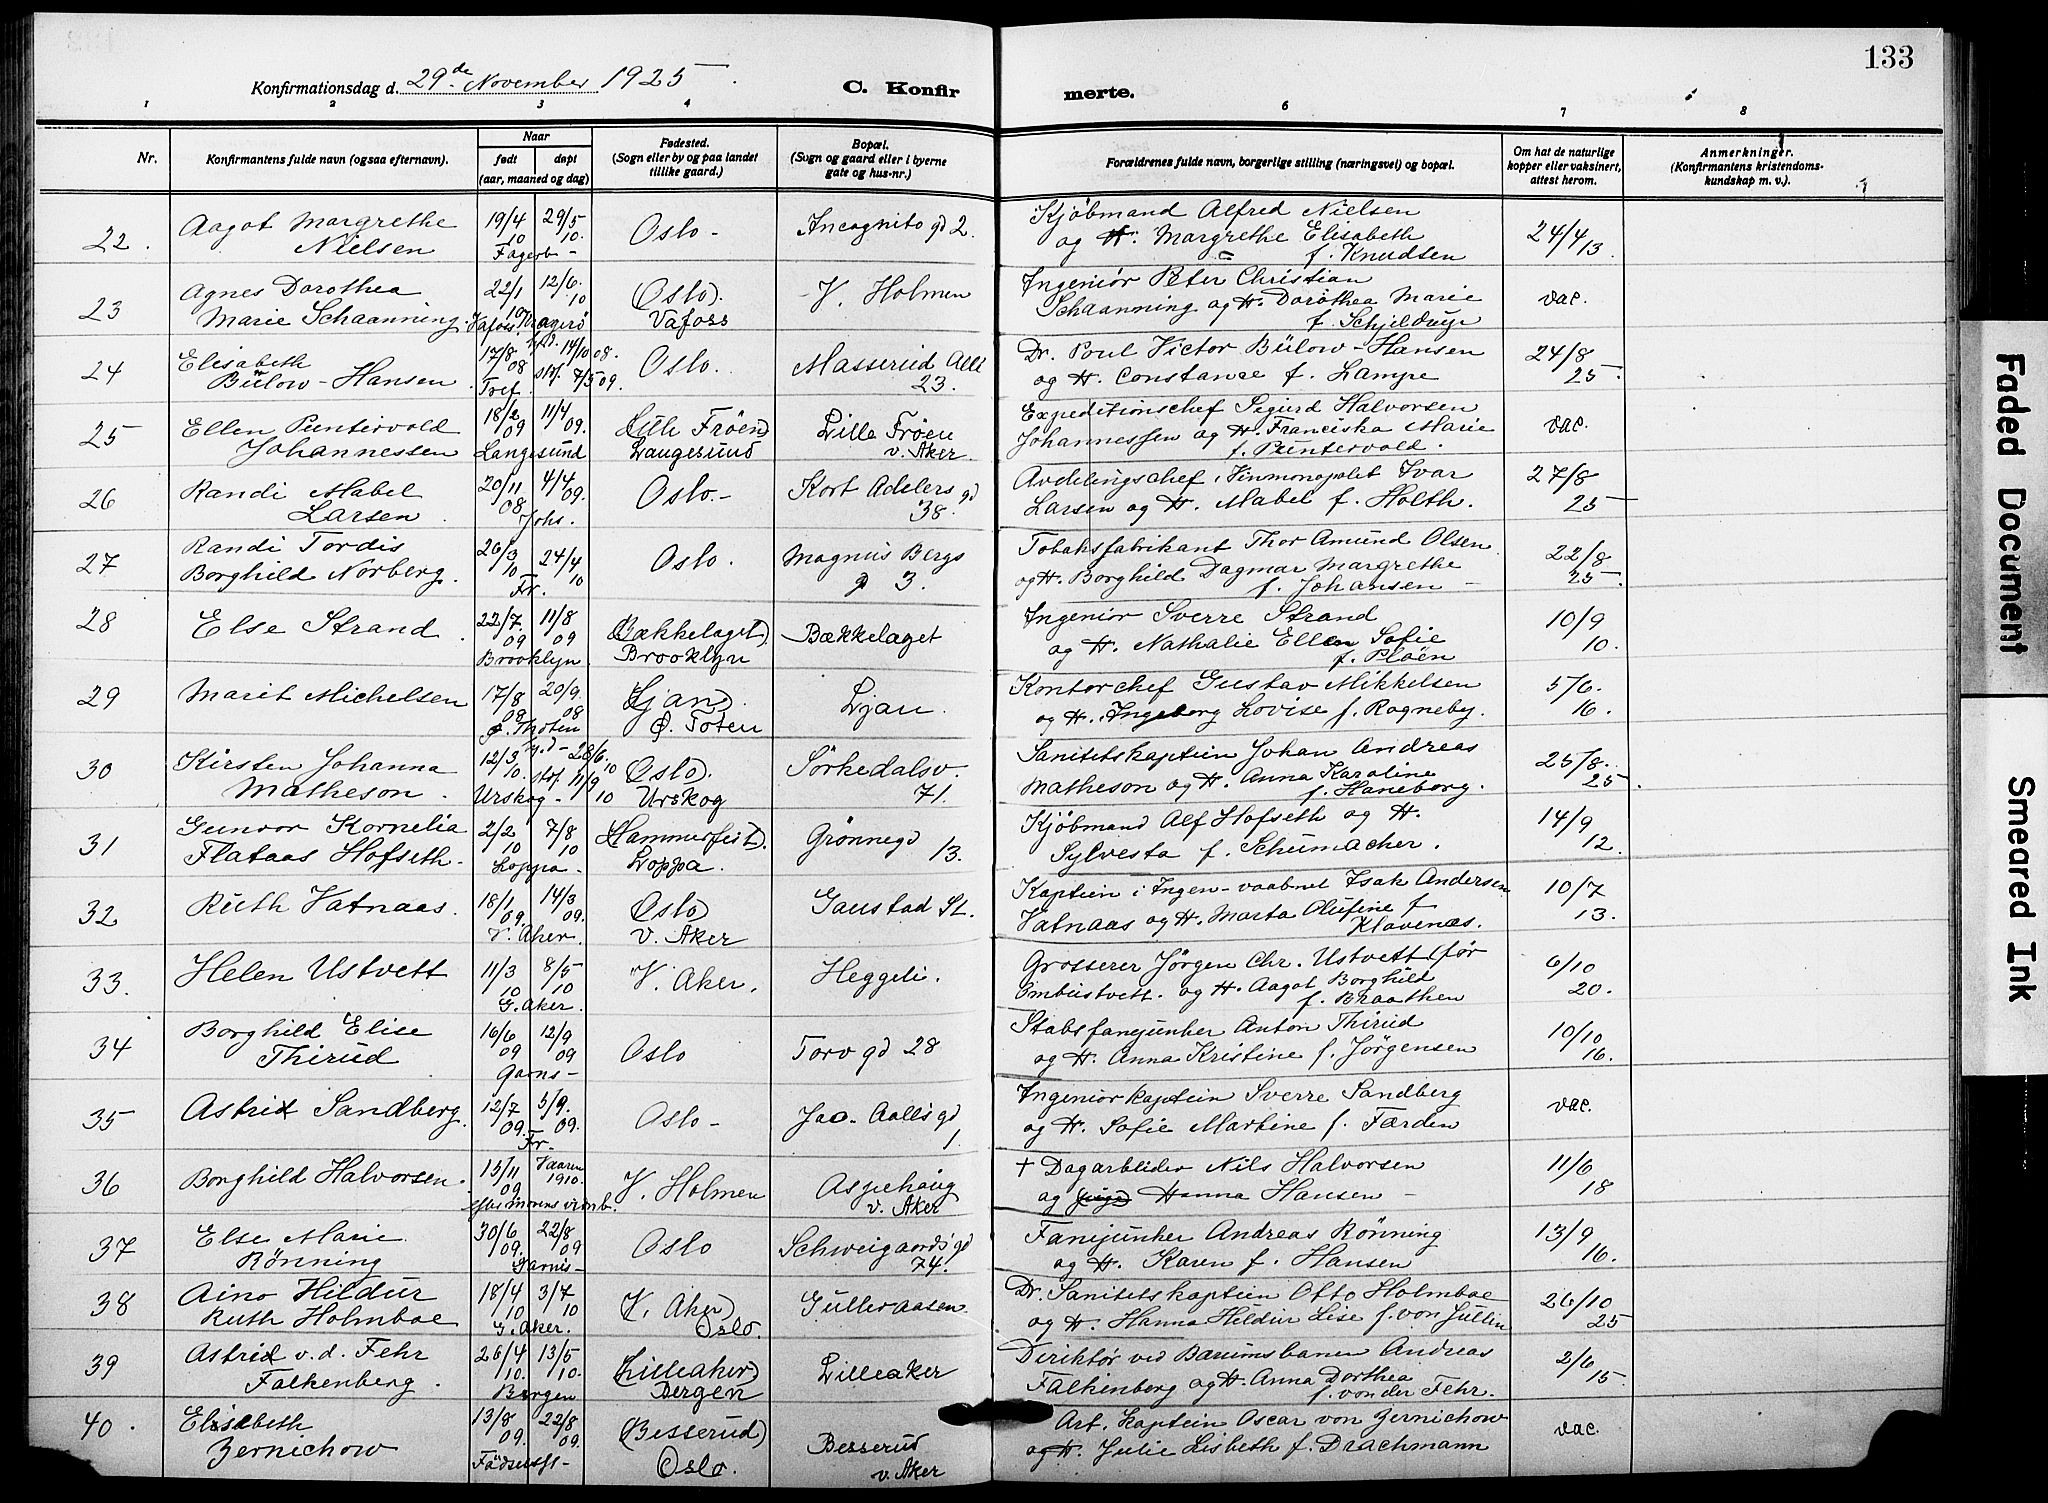 133
Konfirmationsdag d. 29de November 1925.
C. Konfirmerte.
1 2 3 4 5 6 7 8
Nr.
Konfirmantens fulde navn (ogsaa efternavn).
Naar
født
døpt
(aar, maaned og dag)
Fødested.
(Sogn eller by og paa landet
tillike gaard.)
Bopæl.
(Sogn og gaard eller i byerne
gate og hus-nr.)
Forældrenes fulde navn, borgerlige stilling (næringsvei) og bopæl.
Om hat de naturlige
kopper eller vaksinert,
attest herom.
Anmerkninger.
(Konfirmantens kristendoms-
kundskap m. v.).
22. Aagot Margrethe Nielsen 19/4 10 29/5 10. Fagerb- Oslo- Incognito gd 2. Kjøbmand Alfred Nielsen
og H. Margrethe Elisabeth f. Knudsen 24/4 13.
23 Agnes Dorothea Marie Schaanning. 22/1 10 12/6. 10 Vafoss, Kragerö (Oslo). Vafoss V. Holmen Ingeniør Peter Christian
Schaanning og H. Dorothea Marie f. Schjelderup vac.
24 Elisabeth Bülow-Hansen. 17/8 08 hjd. 14/10 08. stf. 7/5 09. Tref. Oslo. Masserud Alle 23. Dr. Poul Victor Bülow-Hansen
og H. Constance f. Lampe 24/8 25.
25 Ellen Puntervold Johannessen 18/2 09 11/4 09. Langesund (Lille Frøen) Langesund Lille Frøen v. Aker. Expeditionschef Sigurd Halvorsen
Johannessen og H. Franciska Marie f. Puntervold. vac.
26 Randi Mabel Larsen. 20/11 08 4/4 09. Johs. Oslo.- Kort Adelers gd 38. Avdelingschef i Vinmonopolet Ivar
Larsen og H. Mabel f. Holth. 27/8 25
27 Randi Tordis Borghild Norberg. 26/3 10 24/4 10 Fr. Oslo. Magnus Bergs g 3. Tobaksfabrikant Thor Amund Olsen
og H. Borghild Dagmar Margrethe f. Johansen - 22/8 25.
28 Else Strand. 22/7. 09 11/8 09 Brooklyn. (Bækkelaget) Brooklyn Bækkelaget Ingeniör Sverre Strand
og H. Nathalie Ellen Sofie f. Ploën 10/9 10.
29 Marit Michelsen 17/8 08 20/9. 08 Ø. Thoten (Ljan). Ø. Toten Ljan. Kontorchef Gustav Mikkelsen
og H. Ingeborg Lovise f. Rogneby. 5/6. 16.
30 Kirsten Johanna Matheson. 12/3 10. hjd- 28/6 10 stf 11/9 10 Urskog- (Oslo). Urskog Sörkedalsv. 71. Sanitetskaptein Johan Andreas
Matheson og H. Anna Karoline f. Haneborg. 25/8. 25.
31 Gunvor Kornelia Flataas Hofseth. 2/2 10 7/8 10 Loppa- (Hammerfest). Loppa. Grönnegd 13. Kjöbmand Alf Hofseth og H.
Sylvesta f. Schumacher. 14/9 12.
32 Ruth Vatnaas. 18/1 09. 14/3 09. V. Aker. (Oslo) V. Aker Gaustad St. Kaptein i Ingen-vaabnet Isak Andersen
Vatnaas og H. Marta Olufine f Klavenæs. 10/7 13.
33. Helen Ustvett 11/3 10 8/5 10 G. Aker. V. Aker. Heggeli. Grosserer Jörgen Chr. Ustvett (før
Ombustvett. og H. Aagot Borghild f. Braathen 6/10 20.
34 Borghild Elise Thirud 16/6 09 12/9 09 Garns- Oslo Torvgd 28 Stabsfanejunker Anton Thirud
og H. Anna Kristine f. Jörgensen 10/10 16.
35 Astrid Sandberg. 12/7 09. 5/9. 09. Fr- Oslo- Jac. Aallsgd 1. Ingeniörkaptein Sverre Sandberg
og H. Sofie Martine f. Færden vac.
36 Borghild Halvorsen. 13/11 09. Vaaren 1910. efter morens vidnb. V. Holmen Aspehaug v. Aker + Dagarbeider Nils Halvorsen
og Hanna Hansen - 11/6 18
37 Else Marie Rönning 30/6 09. 22/8 09 Garnis- Oslo Schweigaards gd 74. Fanejunker Andreas Rönning
og H. Karen f. Hansen 13/9 16.
38 Aino Hildur Ruth Holmboe 18/4 10 3/7 10 G. Aker. (V. Aker) Oslo. Gulleraasen. Dr. Sanitetskaptein Otto Holmboe
og H. Hanna Hildur Lise f. von Jullin 26/10 25
39 Astrid v. d. Fehr Falkenberg. 26/4 10. 13/5 10. Bergen (Lilleaker) Bergen Lilleaker Direktör ved Bærumsbanen Andreas
Falkenberg og H. Anna Dorthea f. von der Fehr. 2/6 15.
40. Elisabeth Zernichow 13/8 09. 22/8 09. Fødselsst- (Besserud) Oslo. Besserud v. Aker Art. kaptein Oscar von Zernichow
og H. Julie Lisbeth f. Drachmann vac.
Faded Document
Smeared Ink